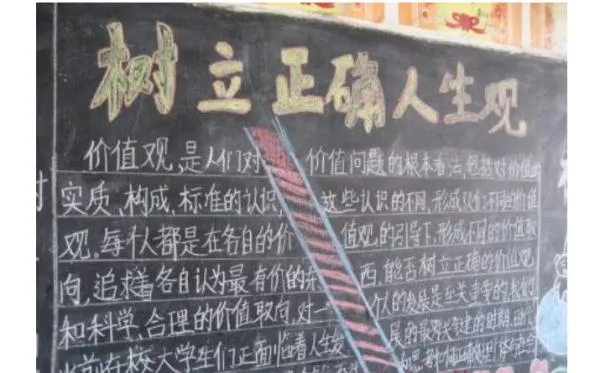 树立正确人生观
价值观,是人们对 价值问题的根本看法,包括对价值的
实质、构成、标准的认识, 这些认识的不同,形成人们不同的价值
观,每个人都是在各自的价 值观的引导下,形成不同的价值取
向,追求着各自认为最有价的东 西,能否树立正确的价值观,
和科学、合理的价值取向,对一 个人的发展是至关重要的,我们
当前在校大学生们正面临着人生发 展的最为关键的时期,